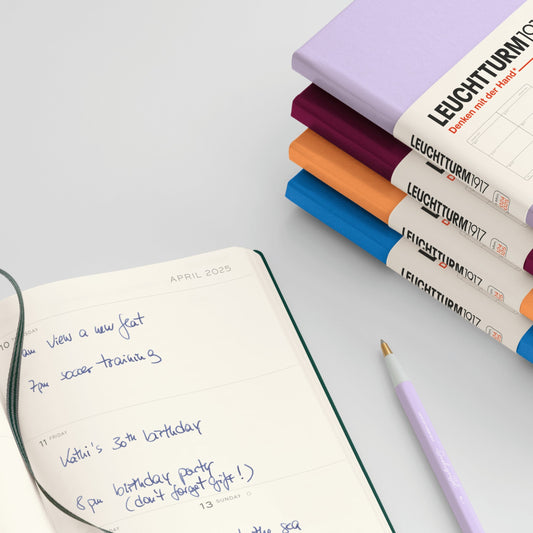 LEUCHTTURM19
Denken mit der Hand®
LEUCHTTURM1917
LEUCHTTURM1917
LEUCHTTURM1917
LEUCHTTURM1917
APRIL 2025
10
am view a new feat
7pm soccer training
11 FRIDAY
Kathi's 30th birthday
8pm birthday party
(don't forget gift!)
13 SUNDAY
the sea